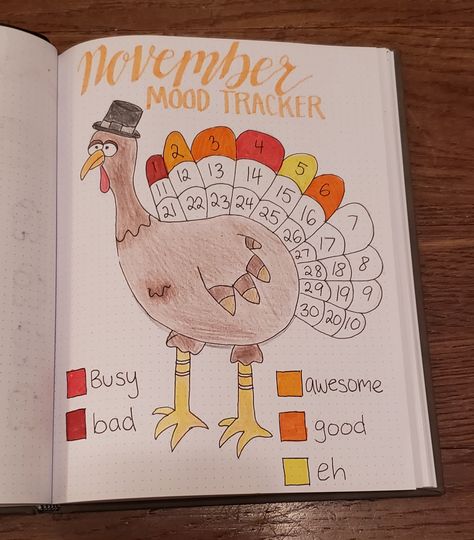 November
MOOD TRACKER
2 3 4 5 6 7 8 9 10
11 12 13 14 15 16 17 18 19 20
21 22 23 24 25 26 27 28 29 30
Busy
bad
awesome
good
eh